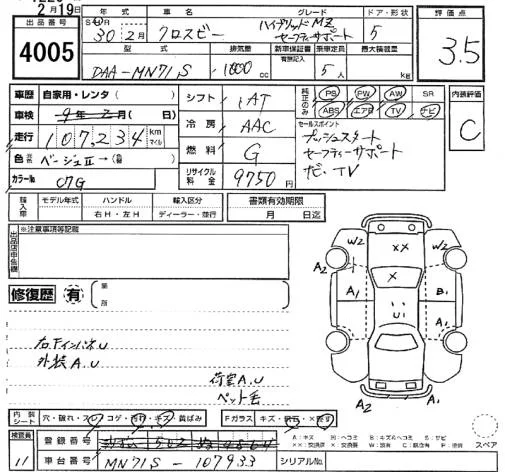 2月19日
出品番号
4005
年式
30年2月
車名
クロスビー
グレード
ハイブリッドMZ
セーフティサポート
ドア・形状
5
評価点
3.5
型式
DAA-MN71S
排気量
1000cc
新車保証書
有無記入
乗車定員
5人
最大積載量
kg
車歴
自家用・レンタ( )
車検
9年2月( 日)
走行
107,234
km
マイル
色
ベージュII→
カラーNo
C7G
シフト
1AT
冷房
AAC
燃料
G
リサイクル料金
9750円
純正のみ
PS PW AW SR
ABS エアB TV ナビ
セールスポイント
プッシュスタート
セーフティーサポート
ナビ、TV
内装評価
C
輸入車
モデル年式
ハンドル
右H・左H
輸入区分
ディーラー・並行
書類有効期限
月 日迄
出品店申告欄
※注意事項等記載
修復歴
有
箇所
右Fインパネ U
外装A.U
荷室A.U
ペット毛
W2
XX
W2
A2
X
A1
B1
U
A1
A2
A2
内装シート
穴・破れ・スレ コゲ・汚れ・キズ 黄ばみ
Fガラス
キズ・
検査員
11
登録番号
車台番号
MN71S-107933
シリアルNo.
A:キズ
U:ヘコミ
B:キズ&ヘコミ
S:サビ
XX:交換済
X:交換要
W:波有
C:腐食有
P:塗装
スペア